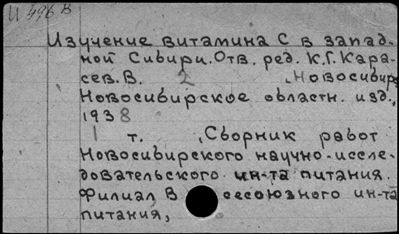 И 496 В
Изучение витамина С в запад-
ной Сибири. Отв. ред. К.Г. Кара-
сев. В. 2 , Новосибирск
Новосибирское областн. изд.,
1938
1 т. , Сборник работ
Новосибирского научно-иссле-
довательского ин-та питания.
Филиал В сесоюзного ин-та
питания,